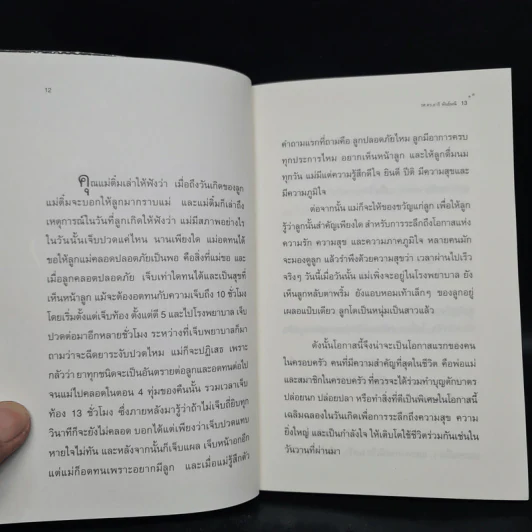 12
คุณแม่ติ๋มเล่าให้ฟังว่า เมื่อถึงวันเกิดของลูก
แม่ติ๋มจะบอกให้ลูกมากราบแม่ และแม่ติ๋มก็เล่าถึง
เหตุการณ์ในวันที่ลูกเกิดให้ฟังว่า แม่มีสภาพอย่างไร
ในวันนั้นเจ็บปวดแค่ไหน นานเพียงใด แม่อดทนได้
ขอให้ลูกคลอดปลอดภัยเป็นพอ คือสิ่งที่แม่ขอ และ
เมื่อลูกคลอดปลอดภัย เจ็บเท่าใดทนได้และเป็นสุขที่
เห็นหน้าลูก แม้จะต้องอดทนกับความเจ็บถึง 10 ชั่วโมง
โดยเริ่มตั้งแต่เจ็บท้อง ตั้งแต่ตี 5 และไปโรงพยาบาล เจ็บ
ปวดต่อมาอีกหลายชั่วโมง ระหว่างที่เจ็บพยาบาลก็มา
ถามว่าจะฉีดยาระงับปวดไหม แม่ก็จะปฏิเสธ เพราะ
กลัวว่า ยาทุกชนิดจะเป็นอันตรายต่อลูกและอดทนต่อไป
จนแม่ไปคลอดในตอน 4 ทุ่มของคืนนั้น รวมเวลาเจ็บ
ท้อง 13 ชั่วโมง ซึ่งภายหลังมารู้ว่าถ้าไม่เจ็บถี่ยิบทุก
วินาทีก็จะยังไม่คลอด บอกได้แต่เพียงว่าเจ็บปวดแทบ
หายใจไม่ทัน และหลังจากนั้นก็เจ็บแผล เจ็บหน้าอกอีก
แต่แม่ก็อดทนเพราะอยากมีลูก และเมื่อแม่รู้สึกตัว
13
คำถามแรกที่ถามคือ ลูกปลอดภัยไหม ลูกมีอาการครบ
ทุกประการไหม อยากเห็นหน้าลูก และให้ลูกดื่มนม
ทุกวัน แม่มีแต่ความรู้สึกดีใจ ยินดี ปีติ มีความสุขและ
มีความภูมิใจ
ต่อจากนั้น แม่ก็จะให้ของขวัญแก่ลูก เพื่อให้ลูก
รู้ว่าลูกนั้นสำคัญเพียงใด สำหรับการระลึกถึงโอกาสแห่ง
ความรัก ความสุข และความภาคภูมิใจ หลายคนมัก
จะมองดูลูก แล้วรำพึงด้วยความสุขว่า เวลาผ่านไปเร็ว
จริงๆ วันนี้เมื่อวันนั้น แม่เพิ่งจะอยู่ในโรงพยาบาล ยัง
เห็นลูกหลับตาพริ้ม ยังแอบหอมเท้าเล็กๆ ของลูกอยู่
เผลอแป๊บเดียว ลูกโตเป็นหนุ่มเป็นสาวแล้ว
ดังนั้นโอกาสนี้จึงน่าจะเป็นโอกาสแรกของคน
ในครอบครัว คนที่มีความสำคัญที่สุดในชีวิต คือพ่อแม่
และสมาชิกในครอบครัว ที่ควรจะได้ร่วมทำบุญตักบาตร
ปล่อยนก ปล่อยปลา หรือทำสิ่งที่ดีเป็นพิเศษในโอกาสนี้
เฉลิมฉลองในวันเกิดเพื่อการระลึกถึงความสุข ความ
ยิ่งใหญ่ และเป็นกำลังใจ ให้เติบโตใช้ชีวิตร่วมกันเช่นใน
วันวานที่ผ่านมา